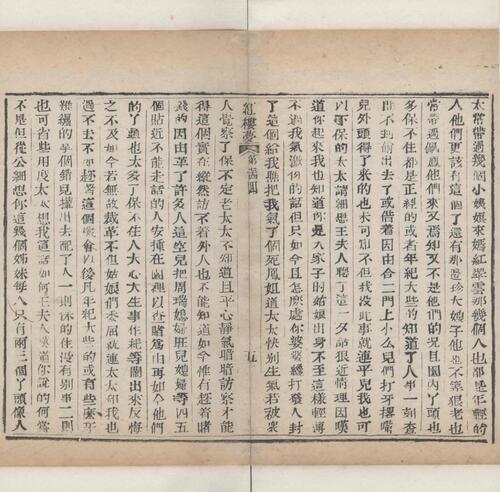 太常帶過幾個小姨娘來嫣紅翠雲那幾個人也都是年輕的
人他們更該有這個了還有那邊珍大嫂子他也不算狠老也
常帶過佩鳳他們來又焉知又不是他們的況且園內丫頭也
多保不住都是正經的或者年紀大些的知道了人事一刻查
問不到偷出去了或借着因由合二門上小么兒們打牙撂嘴
兒外頭得了來的也未可知不但我沒此事就連平兒我也可
以下保的太太請細想王夫人聽了這一夕話狠近情理因嘆
道你起來我也知道你是大家子的姑娘出身不至這樣輕薄
不過我氣激你的話但只如今且怎麽處你婆婆纔打發人封
了這個給我瞧把我氣了個死鳳姐道太太快別生氣若被衆
紅樓夢 第 回 五
人覺察了保不定老太太不知道且平心靜氣暗暗訪察才能
得這個實在縱然訪不着外人也不能知道如今惟有趁着賭
錢的因由革了許多人這空兒把周瑞媳婦旺兒媳婦等四五
個貼近不能走話的人安揷在園裡以查賭爲由再如今他們
的丫頭也太多了保不住人大心大生事作耗等鬧出來反悔
之不及如今若無故裁革不但姑娘們委屈就連太太和我也
過不去不如趁着這個機會以後凡年紀大些的或有些磨牙
難纏的拿個錯兒攆出去配了人一則保的住沒有別事二則
也可省些用度太太想我這話如何王夫人嘆道你說的何嘗
不是但從公細想你這幾個姊妹每人只有兩三個丫頭像人